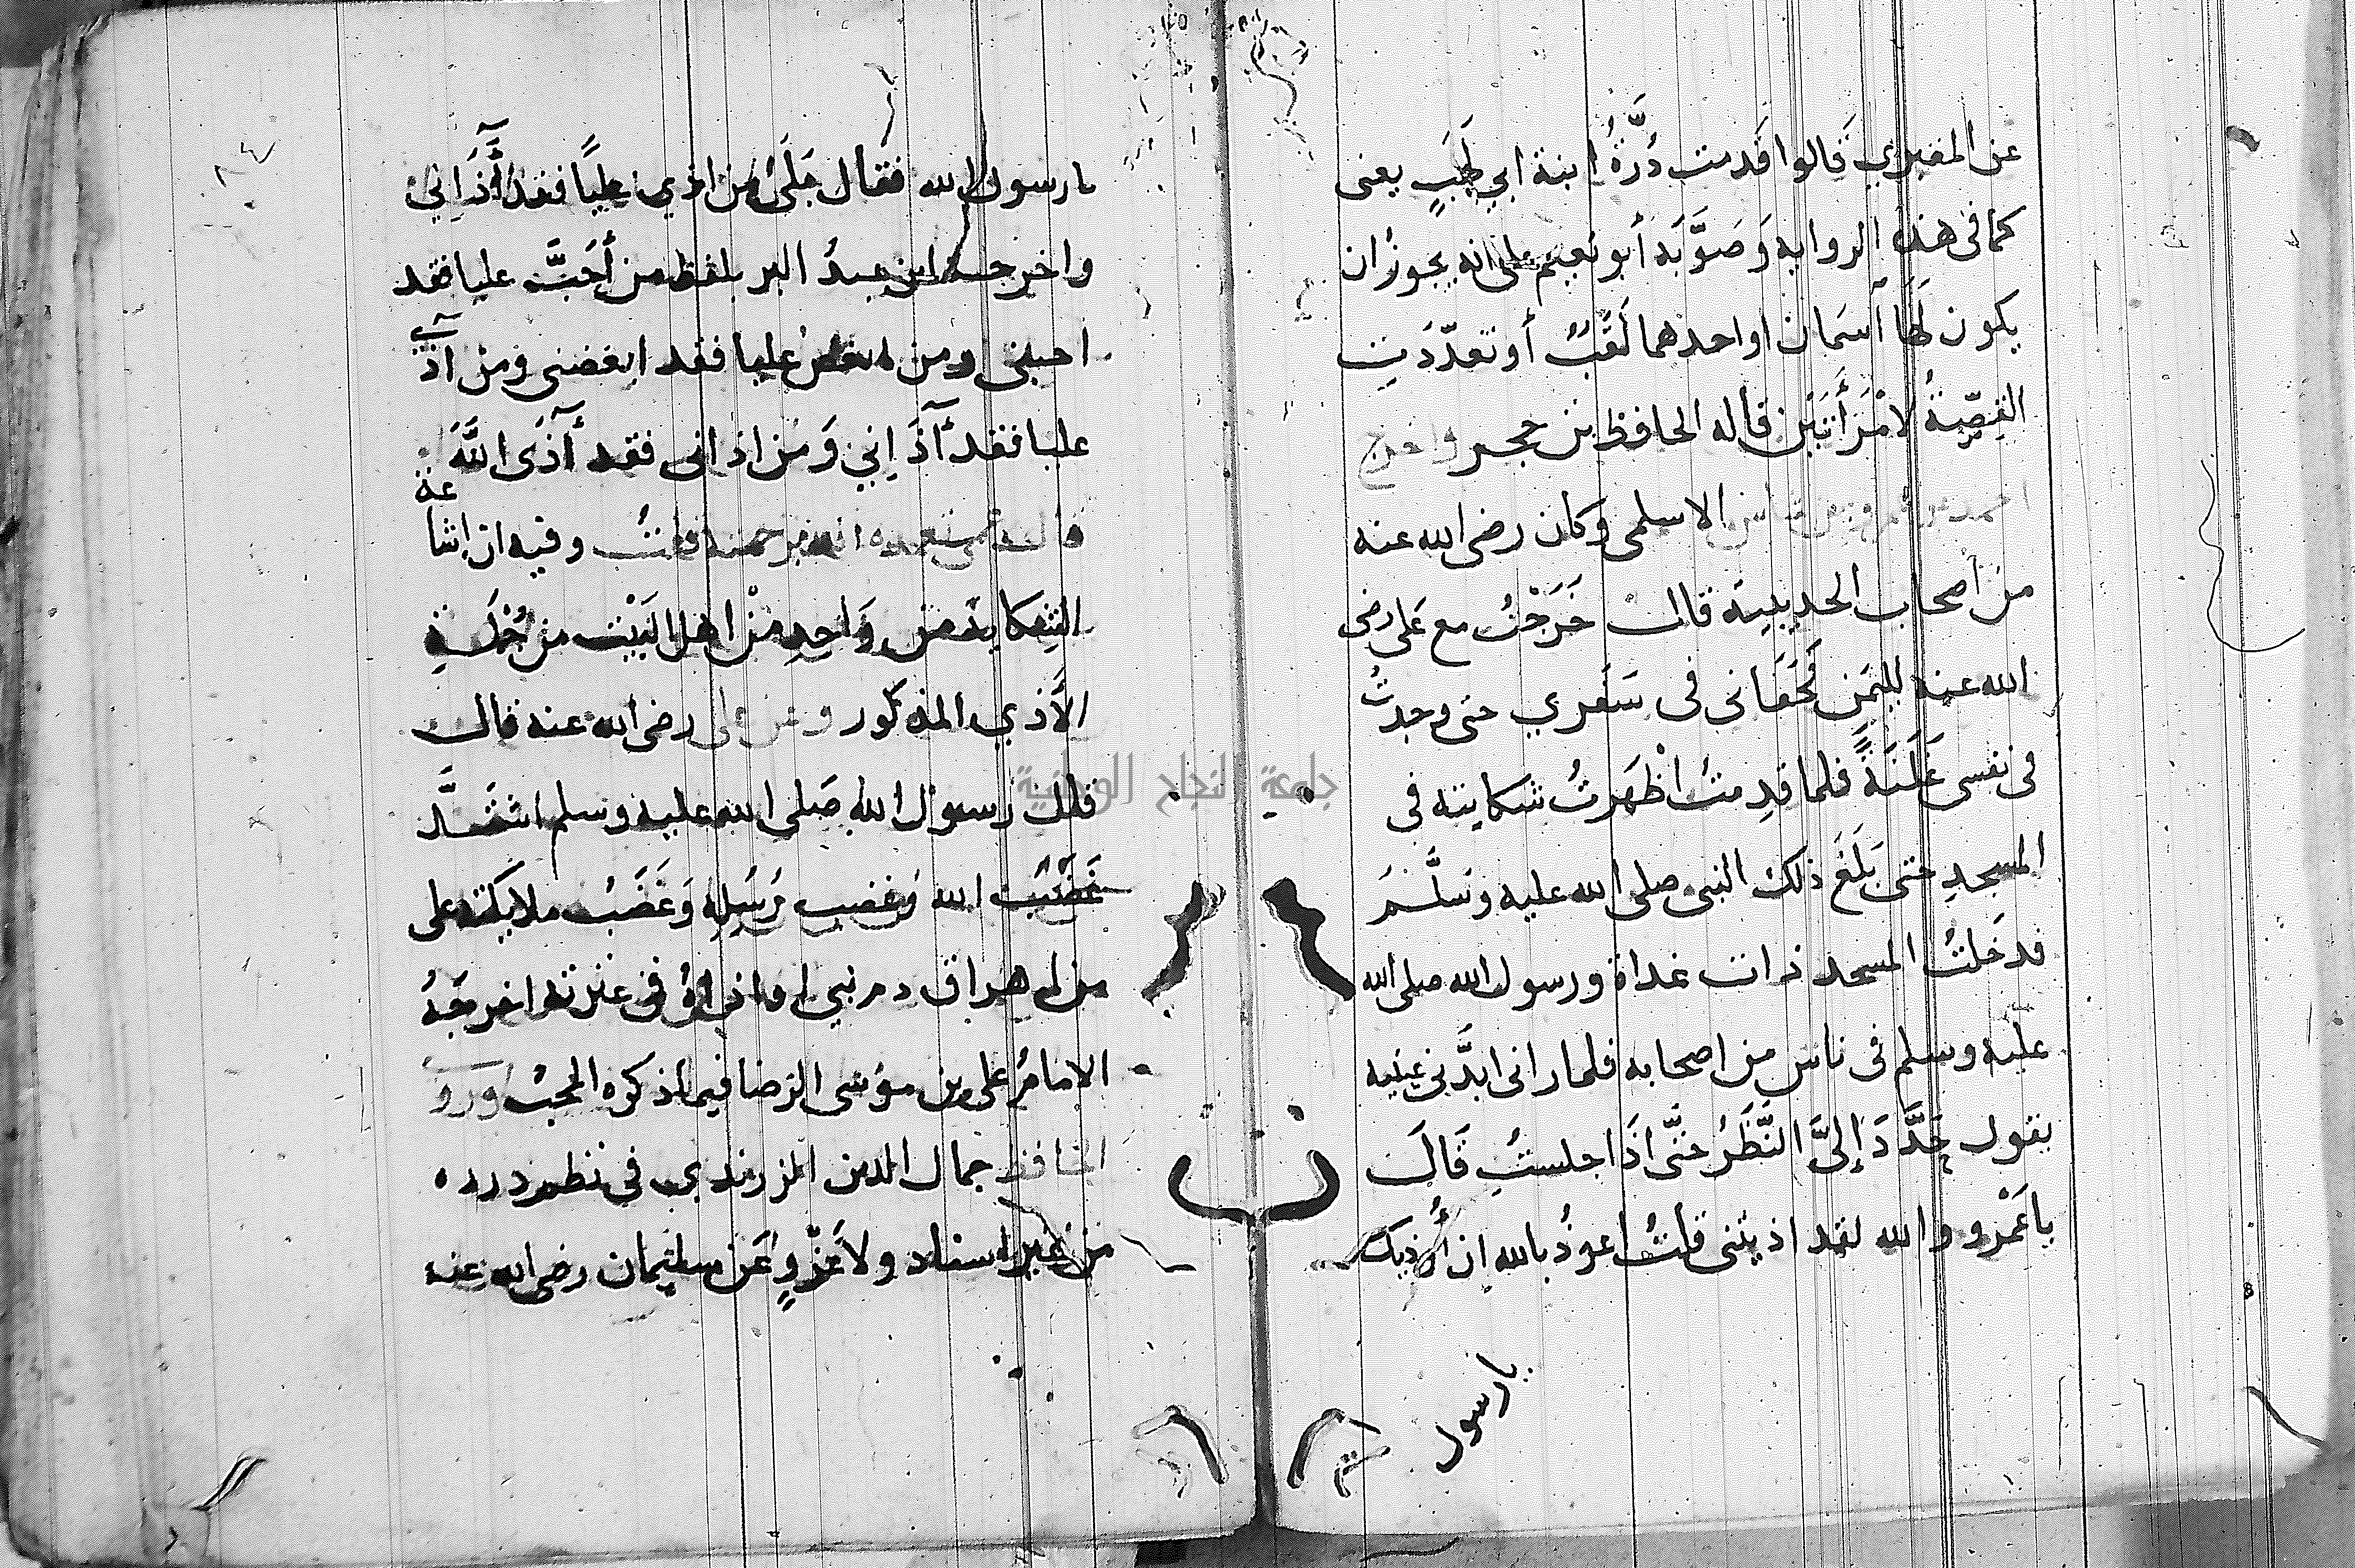 عن المقبري قَالوا قَدمت دُرَّةُ ابنة ابي لَهَبٍ يعنى
كما فى هذه الروايه وَصَوَّبَه أبو نعيم على انه يجوز ان
يكون لَهَا آسمَان او احدهما لَقَبٌ أو تعدّدَت
القِصّةُ لامْرَأتَين قاله الحافظ بن حجر واخرج
احمد عن عمرو بن شاس الاسلمى وكان رضى الله عنه
من أصحاب الحديبيه قال خَرَجْتُ مع عَلى رضى
الله عنه لليَمَن فَجَفَانى فى سَفَري حتى وجدتُ
فى نفسى عَلَيَهً فلما قدِمتُ اظْهَرتُ شكايته فى
المسجدِ حتى بَلَغَ ذلك النبى صلى الله عليه وسَلَّمَ
فدخَلتُ المسجد ذات غداة ورسول الله صلى الله
عليه وسلم فى ناس من اصحابه فلما رانى ابدَّنى عينيه
يقول حَدَّدَ إلىَّ النَّظَرُ حتَّى اذَا جلستُ قَالَ
يا عَمْرو والله لقد اذيتنى قلتُ اعوذُ بالله ان أُوذيك
يا رسول
٨٤
يا رسول الله فقال بَلَى من اذي عليًا فقد أَذَانِي
واخرجه ابن عبدُ البر بلفظ من أَحَبَّ عليا فقد
احبنى ومن ابغض عليا فقد ابغضنى ومن آذى
عليا فقد آذَانِي وَمن اذانى فقد آذَى اللَّهَ
وفيه ان اشاعة
الشِكاية من وَاحدٍ مِنْ اهل البَيْت من جُملَةِ
الأَذي المذكور وعن على رضى الله عنه قال
قال رَسول الله صَلى الله عليه وسلم اشتَدَّ
غَضَبُ الله وغضب رُسُلِه وَغَضَبُ ملايكته على
من اهراق دم نبي او اذاهُ فى عترته اخرجَهُ
الامامُ على بن موسى الرضا فيما ذكره المحبُ ورَوَ
الحافظ جمال الدين الزرندي فى نظم درره
من غير اسناد ولا عَزْوٍ وعَن سليمان رضى الله عنه
جامعة النجاح الوطنية